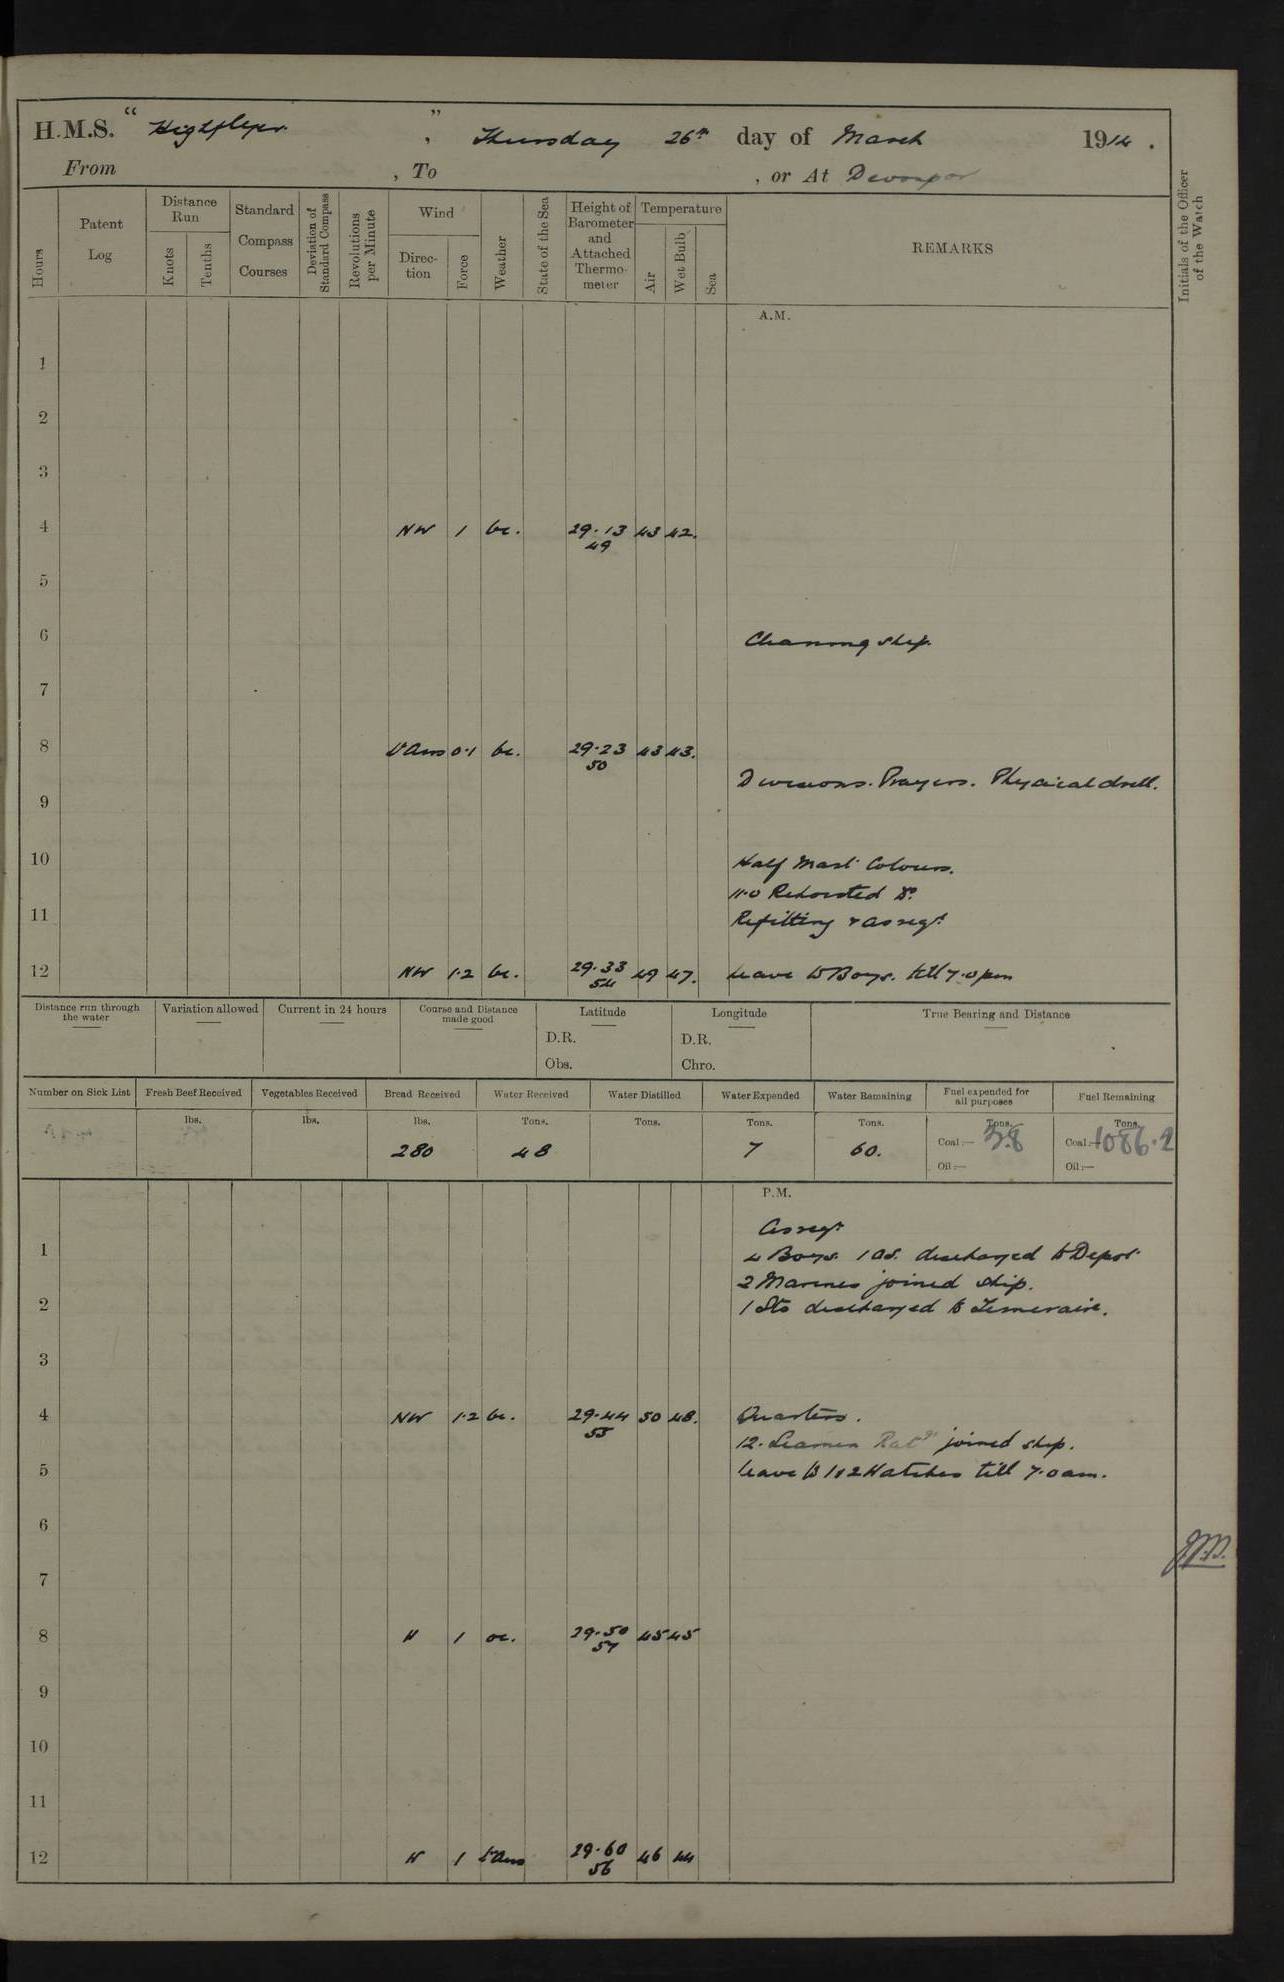 H.M.S. "Highflyer.", Thursday 26th day of March 1914.
From , To , or At Devonpor
Hours
Patent Log
Distance Run
Knots
Tenths
Standard Compass Courses
Deviation of Standard Compass
Revolutions per Minute
Wind
Direction
Force
Weather
State of the Sea
Height of Barometer and Attached Thermometer
Temperature
Air
Wet Bulb
Sea
REMARKS
Initials of the Officer of the Watch
A.M.
1
2
3
4 NW 1 bc. 29.13 43 42.
49
5
6 Cleaning ship.
7
8 0.1 bc. 29.23 43 43.
50
Divisions. Prayers. Physical drill.
9
10 Half Mast Colours.
11.0 Rehoisted Do
11 Refitting & as reqt
12 NW 1.2 bc. 29.33 49 47. Leave to Boys. till 7.0 pm
54
Distance run through the water
Variation allowed
Current in 24 hours
Course and Distance made good
Latitude
D.R.
Obs.
Longitude
D.R.
Chro.
True Bearing and Distance
Number on Sick List
Fresh Beef Received
lbs.
Vegetables Received
lbs.
Bread Received
lbs.
280
Water Received
Tons.
48
Water Distilled
Tons.
Water Expended
Tons.
7
Water Remaining
Tons.
60.
Fuel expended for all purposes
Tons.
Coal:— 3.8
Oil:—
Fuel Remaining
Tons.
Coal:— 1086.2
Oil:—
P.M.
As reqt
1 4 Boys. 1 OS. discharged to Depot
2 Marines joined ship.
2 1 Sto discharged to Temeraire.
3
4 NW 1.2 bc. 29.44 50 48. Quarters.
55
12. Seamen Ratgs joined ship.
5 Leave to 1 & 2 Watches till 7.0 am.
6
7
8 1 oc. 29.50 45 45
57
9
10
11
12 1 29.60 46 44
56